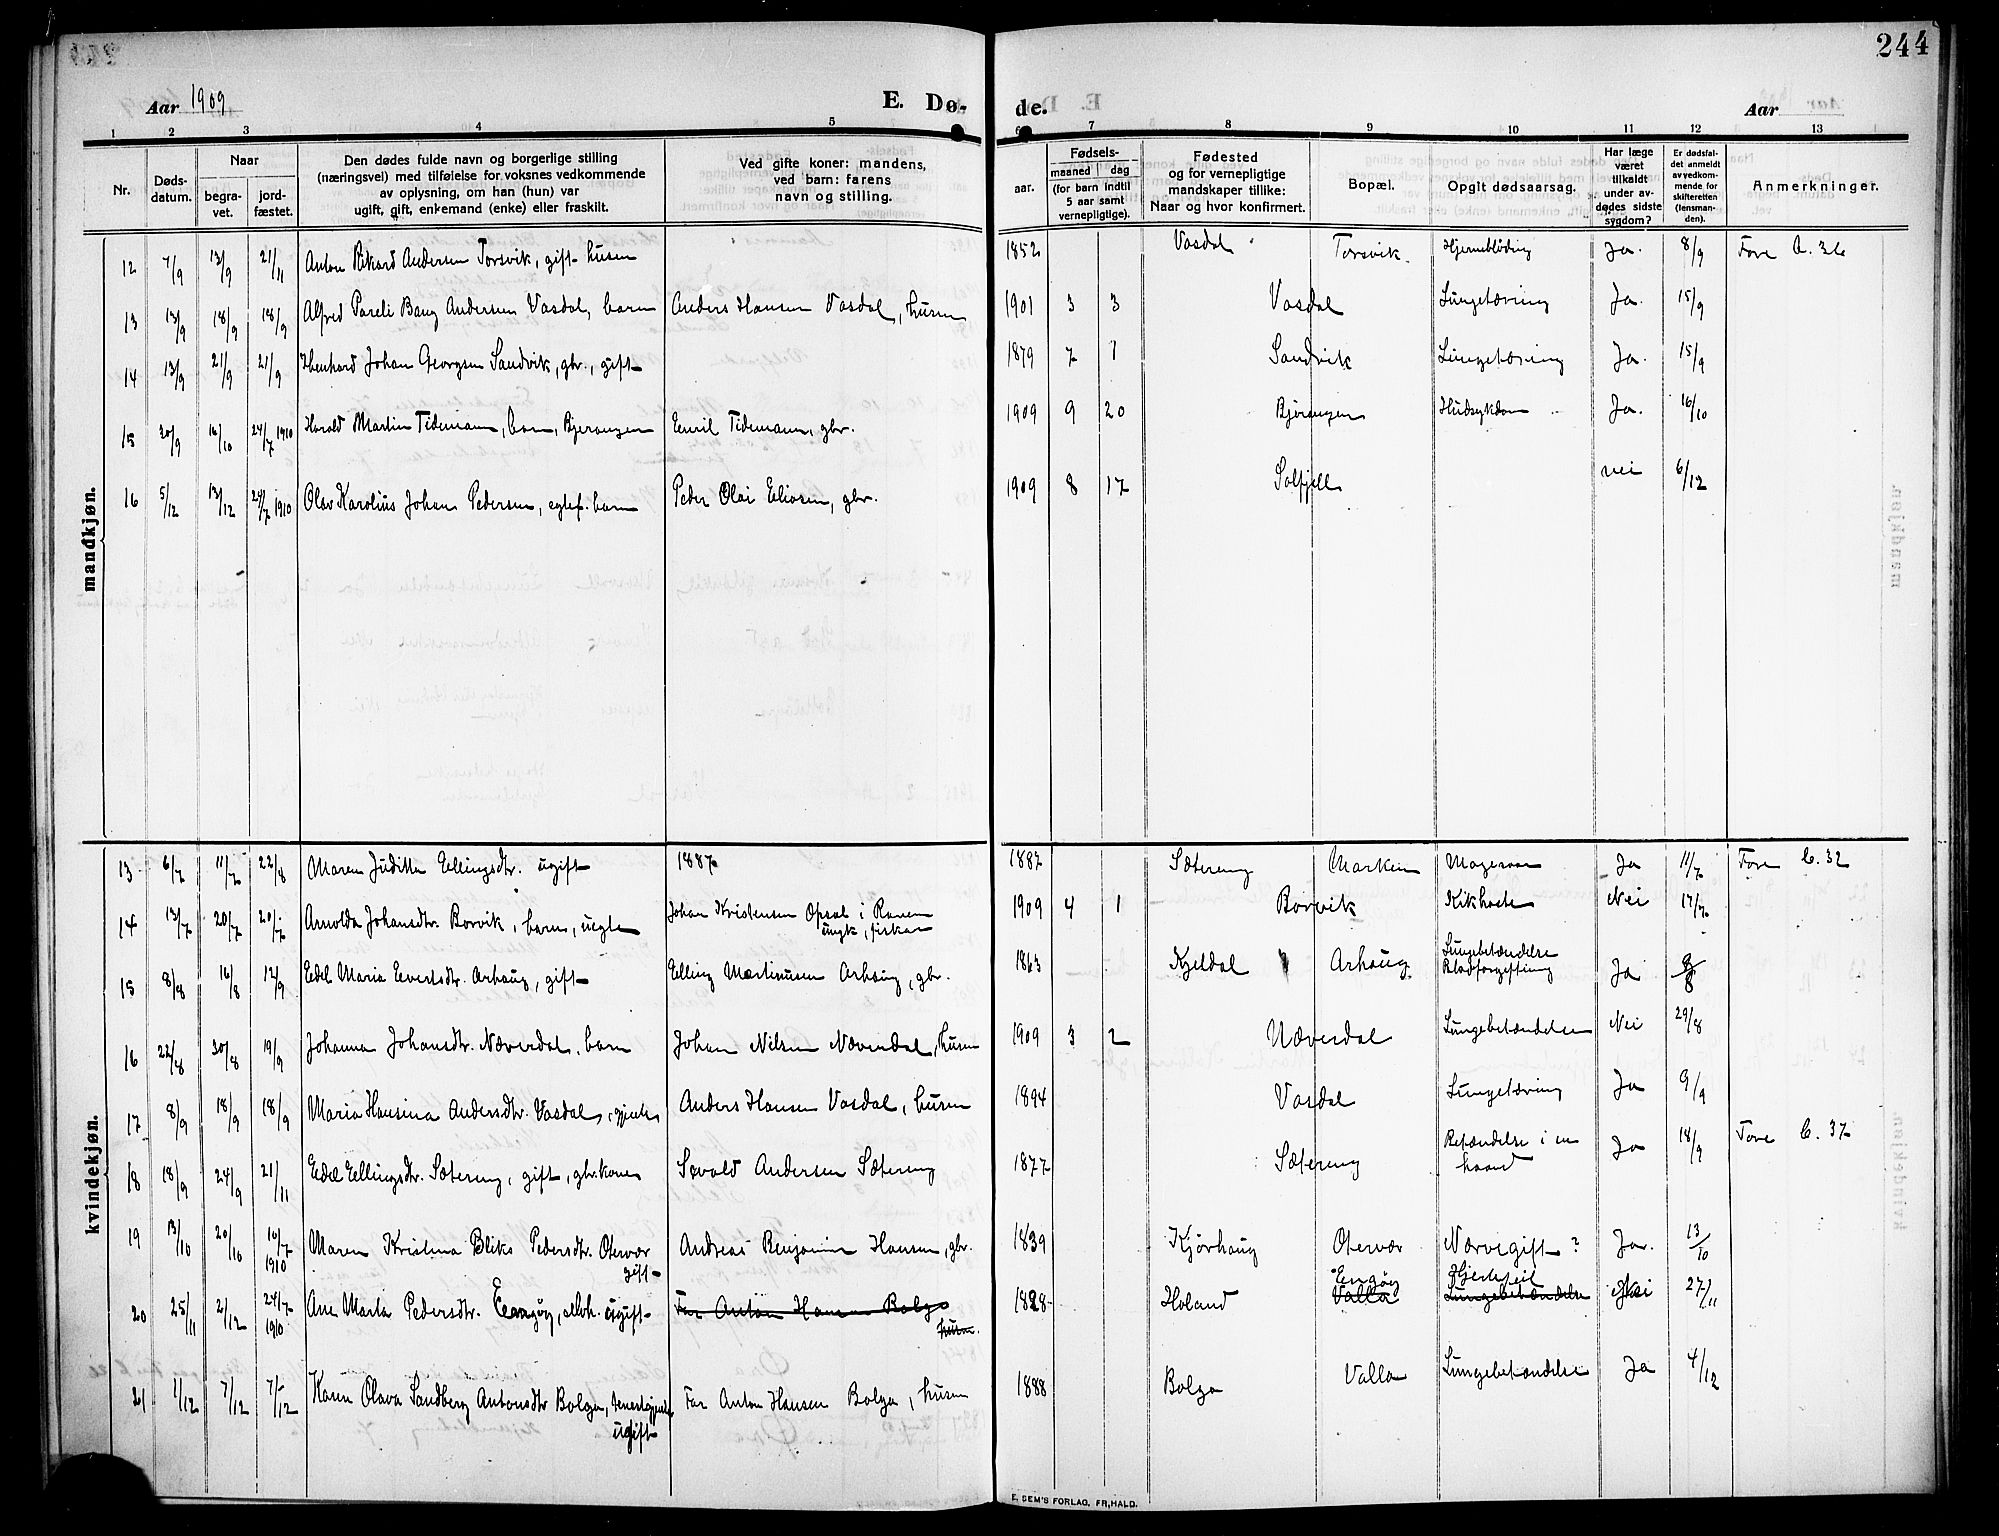 244
Aar 1909
E. Dø-
de.
Aar
1 2 3 4 5 6 7 8 9 10 11 12 13
Nr.
Døds-
datum.
Naar
begra-
vet.
jord-
fæstet.
Den dødes fulde navn og borgerlige stilling
(næringsvei) med tilføielse for voksnes vedkommende
av oplysning, om han (hun) var
ugift, gift, enkemand (enke) eller fraskilt.
Ved gifte koner: mandens,
ved barn: farens
navn og stilling.
Fødsels-
aar.
maaned dag
(for barn indtil
5 aar samt
vernepligtige).
Fødested
og for vernepligtige
mandskaper tillike:
Naar og hvor konfirmert.
Bopæl.
Opgit dødsaarsag.
Har læge
været
tilkaldt
under av-
dødes sidste
sygdom?
Er dødsfal-
det anmeldt
av vedkom-
mende for
skifteretten
(lensman-
den).
Anmerkninger.
mandkjøn.
12 7/9 13/9 21/11 Anton Rikard Andersen Torsvik, gift husm 1852 Vasdal Torsvik. Hjerneblødning Ja. 8/9 Fore A. 36
13 13/9 18/9 18/9 Alfred Pareli Bang Andersen Vasdal, barn Anders Hansen Vasdal, husm 1901 3 3 Vasdal Lungetæring Ja 15/9
14 13/9 21/9 21/9 Johan Georgsen Sandvik, gbr., gift 1879 7 1 Sandvik Lungetæring Ja. 15/9
15 20/9 16/10 24/7 1910 Harald Martin Tidemann, barn, Bjerangen Emil Tidemann, gbr. 1909 9 20 Bjerangen Hudsykdom Ja. 16/10
16 5/12 13/12 24/7 1910 Olav Karolius Johan Pedersen, egtef. barn Peder Olai Eliasen, gbr. 1909 8 17 Solfjell nei 6/12
kvindekjøn.
13 6/7 11/7 22/8 Maren Juditha Ellingsdtr. ugift 1887 1887 Sætereng Marken Mavesaar Ja 11/7 Fore C. 32
14 13/7 20/7 20/7 Arnolda Johansdtr. Borvik, barn, uegte Johan Kristensen Opsal i Ranen
ungk, fisker 1909 4 1 Borvik Kikhoste Nei 17/7
15 8/8 16/8 12/9 Edel Maria Evertsdtr. Arhaug, gift Elling Martinusen Arhaug, gbr. 1863 Kjeldal Arhaug Lungebetændelse
Blodforgiftning Ja 9/8
16 22/8 30/8 19/9 Johanna Johansdtr. Næverdal. barn Johan Nilsen Næverdal, husm 1909 3 2 Næverdal Lungebetændelse Nei 29/8
17 8/9 18/9 18/9 Maria Hansina Andersdtr. Vasdal, Anders Hansen Vasdal, husm 1894 Vasdal Lungetæring Ja 9/9
18 18/9 24/9 21/11 Edel Ellingsdtr. Sætereng, gift, gbr. kone Sevald Andersen Sætereng 1877 Sætereng Betændelse i en
haand Ja 18/9 Fore C. 37
19 13/10 20/10 10/7 1910 Maren Kristina Bliks Pedersdtr. Otervær
gift Andreas Benjamin Hansen, gbr. 1839 Kjørhaug Otervær Nærvegift? Ja. 13/10
20 25/11 2/12 24/7 1910 Ane Marta Pedersdtr. Engøy, ugift Far Anton Hansen Bolga
husm. 1828 Holand Engøy
Valla Hjertefeil
Lungebetændelse 27/11
21 1/12 7/12 7/12 Karen Olava Sandberg Antonsdtr Bolga, tenestgjente
ugift Far Anton Hansen Bolga, husm 1888 Bolga Valla Lungebetændelse Ja 4/12
E. SEM'S FORLAG, FR.HALD.